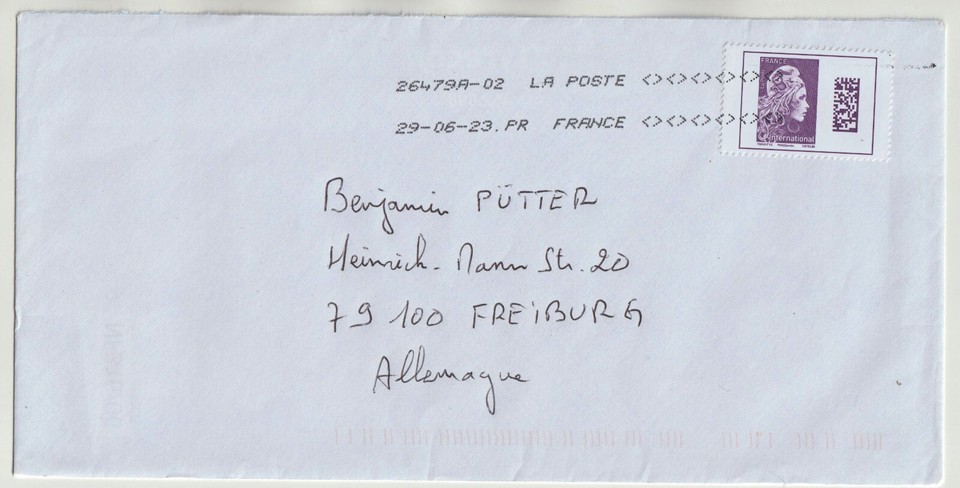 26479A-02 LA POSTE <><><><><><>
29-06-23.PR FRANCE <><><><><><>
FRANCE
international
Benjamin PÜTTER
Heinrich-Mann Str. 20
79 100 FREiBURG
Allemagne